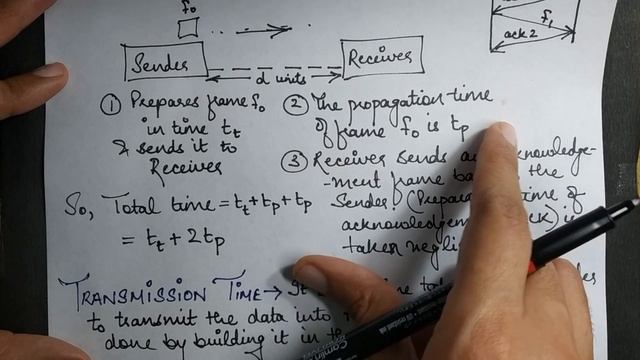 f₀
f₁
ack 2
Sender
Receiver
d units
① Prepares frame f₀
in time tt
& sends it to
Receiver
② The propagation time
of frame f₀ is tp
③ Receiver sends
-ment frame the
Sender time of
taken
So, Total time = tt + tp + tp
= tt + 2tp
TRANSMISSION TIME →
to transmit the data into
done by building it in